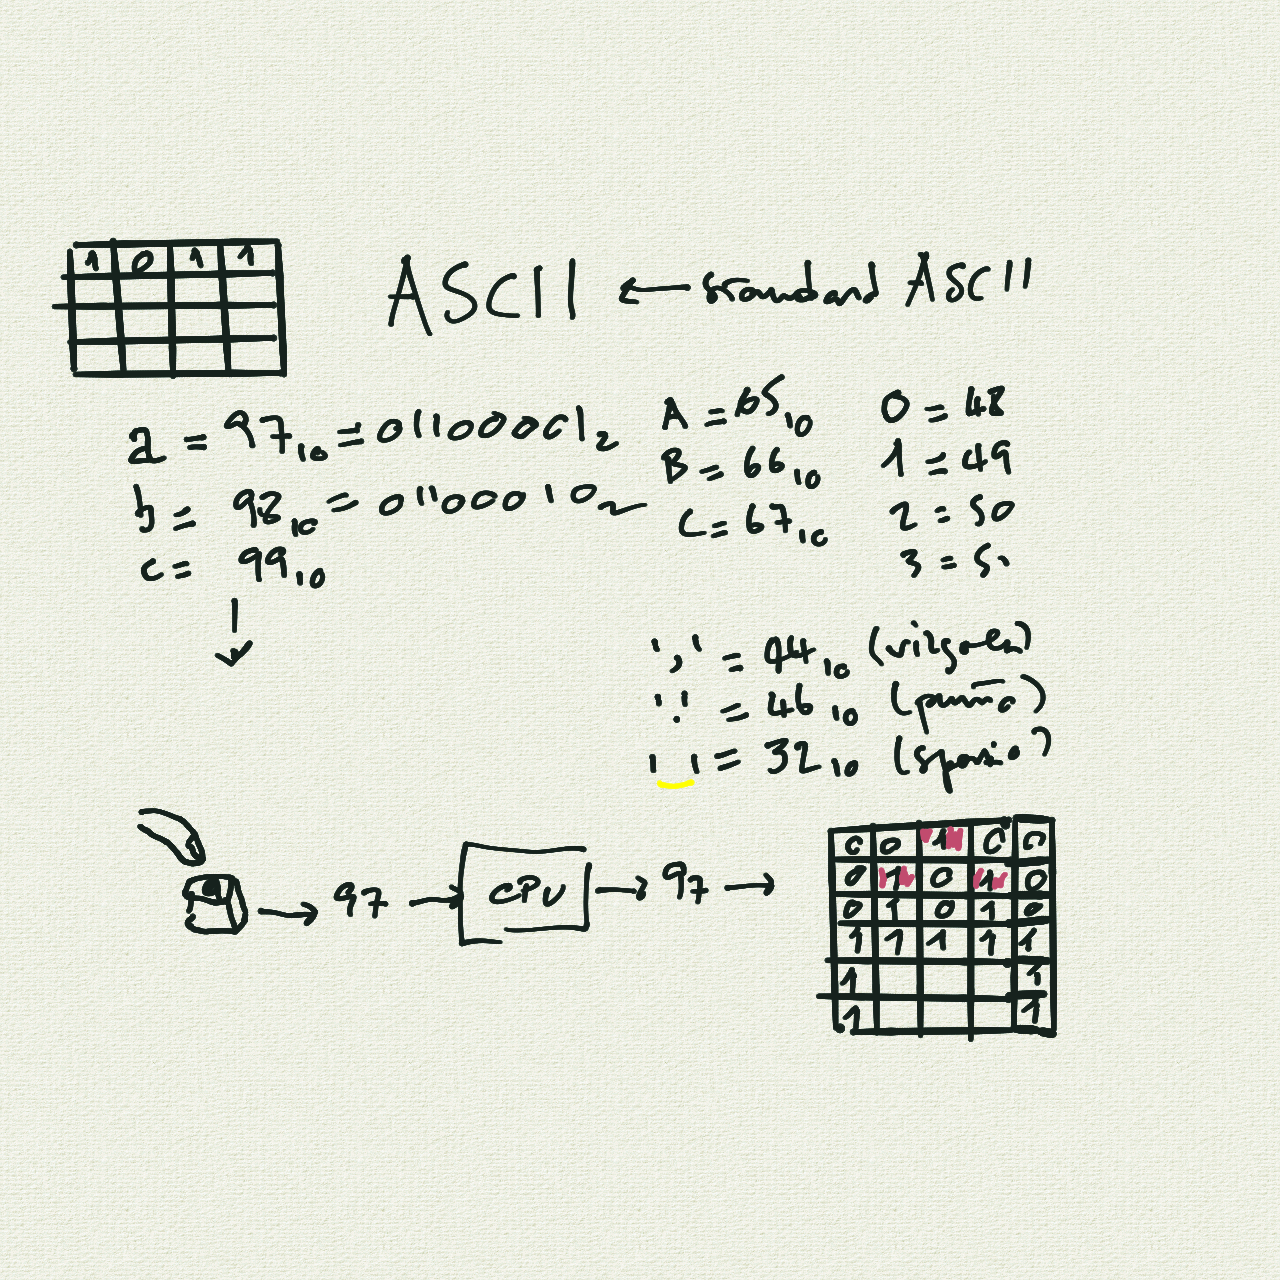 1 0 1 1
ASCII ← standard ASCII
a = 97₁₀ = 01100001₂
b = 98₁₀ = 01100010₂
c = 99₁₀
A = 65₁₀
B = 66₁₀
C = 67₁₀
0 = 48
1 = 49
2 = 50
3 = 5
',' = 44₁₀ (virgola)
'.' = 46₁₀ (punto)
' ' = 32₁₀ (spazio)
a → 97 → CPU → 97 →
0 0 1 0 0
0 1 0 1 0
0 1 0 1 0
1 1 1 1 1
1 1
1 1